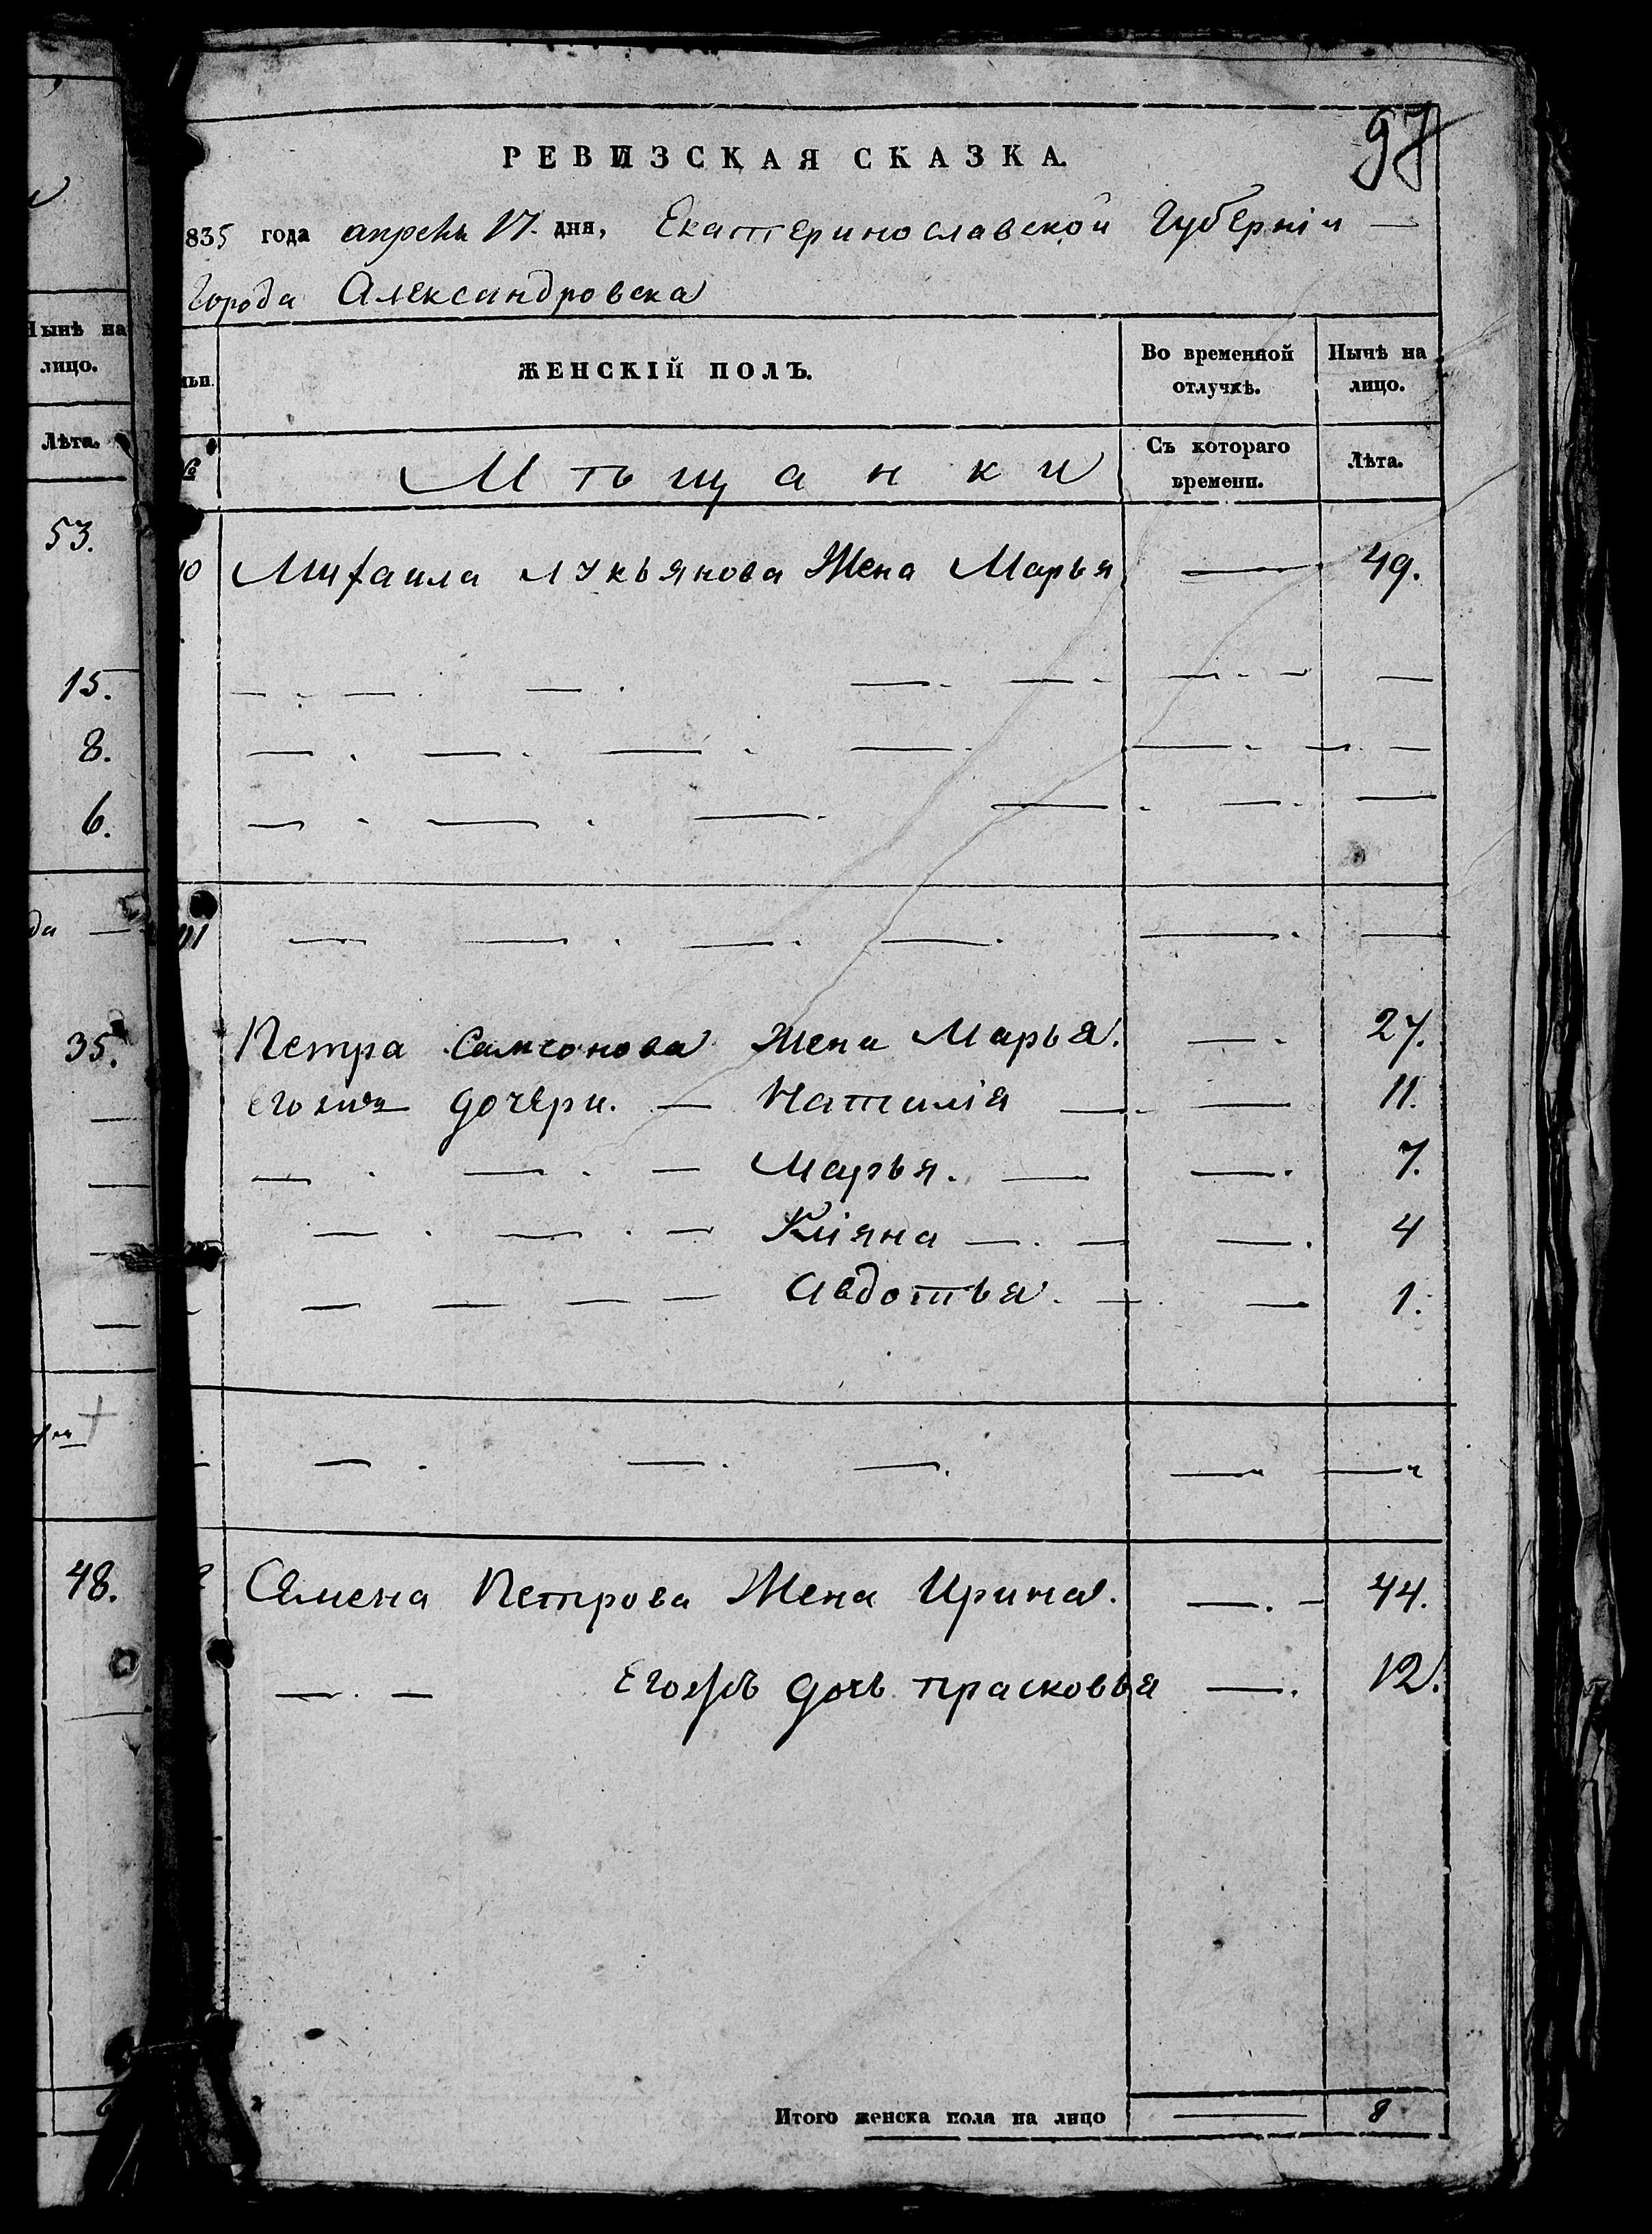 97
РЕВИЗСКАЯ СКАЗКА.
835 года апреля 17. дня, Екатеринославской Губерніи —
Города Александровска
Нынѣ на
лицо.
Лѣта.
53.
15.
8.
6.
да —
35.
48.
ЖЕНСКІЙ ПОЛЪ.
Во временной
отлучкѣ.
Нынѣ на
лицо.
Мѣщанки
Съ котораго
времени.
Лѣта.
10 Михаила Лукьянова Жена Марья — 49.
Петра Самсонова Жена Марья. — 27.
дочери. — Наталія — — 11.
— — — Марья. — — 7.
— — — — — — 4
— — — — Авдотья. — — 1.
Семена Петрова Жена Ирина. — 44.
— — Егожъ дочь прасковья — 12.
Итого женска пола на лицо — 8